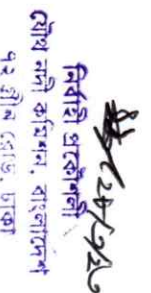 নির্বাহী প্রকৌশলী
যৌথ নদী কমিশন, বাংলাদেশ
৭২ গ্রীন রোড, ঢাকা